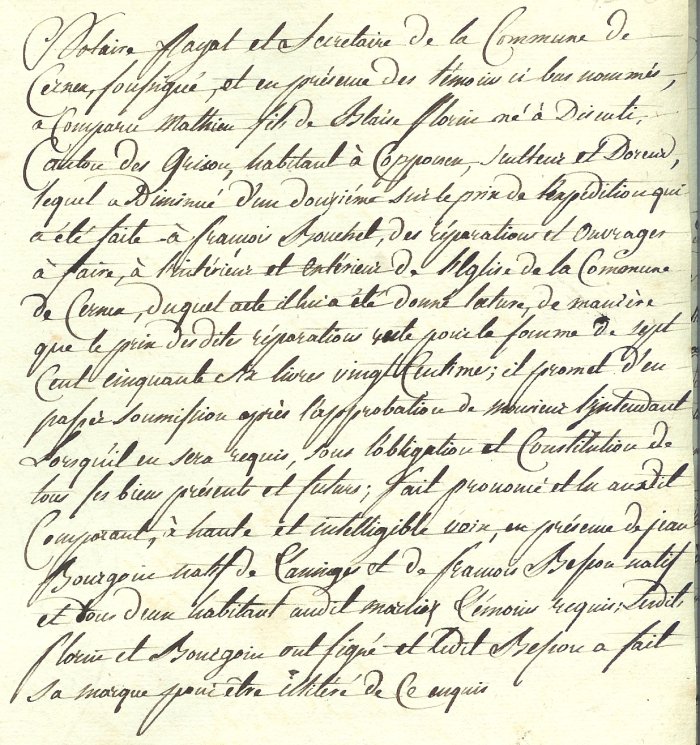 Notaire Royal et Secretaire de la Commune de
Cernex, soussigné, et en présence des témoins ci bas nommés,
a Comparu Mathieu fils de Blaise florin né à Disenti,
Canton des Grison, habitant à Copponex, sculteur et Doreur,
lequel a Diminué d'un douzième sur le prix de l'expédition qui
a été faite à françois Bouchet, des réparations et ouvrages
à faire, à l'intérieur et extérieur de l'Eglise de la Commune
de Cernex, duquel acte il lui a été donné lecture, de manière
que le prix desdites réparations reste pour la somme de sept
Cent cinquante six livres vingt Centimes; il promet d'en
passer soumission après l'approbation de monsieur l'intendant
Lorsqu'il en sera requis, sous l'obligation et Constitution de
tous ses biens présents et futurs; fait prononcé et lu audit
Comparant, à haute et intelligible voix, en présence de jean
Bourgoin natif de Taninges et de françois Besson natif
et tous deux habitant audit témoins requis; Ledit
florin et Bourgoin ont signé et Ledit Besson a fait
sa marque pour être illitéré de Ce enquis